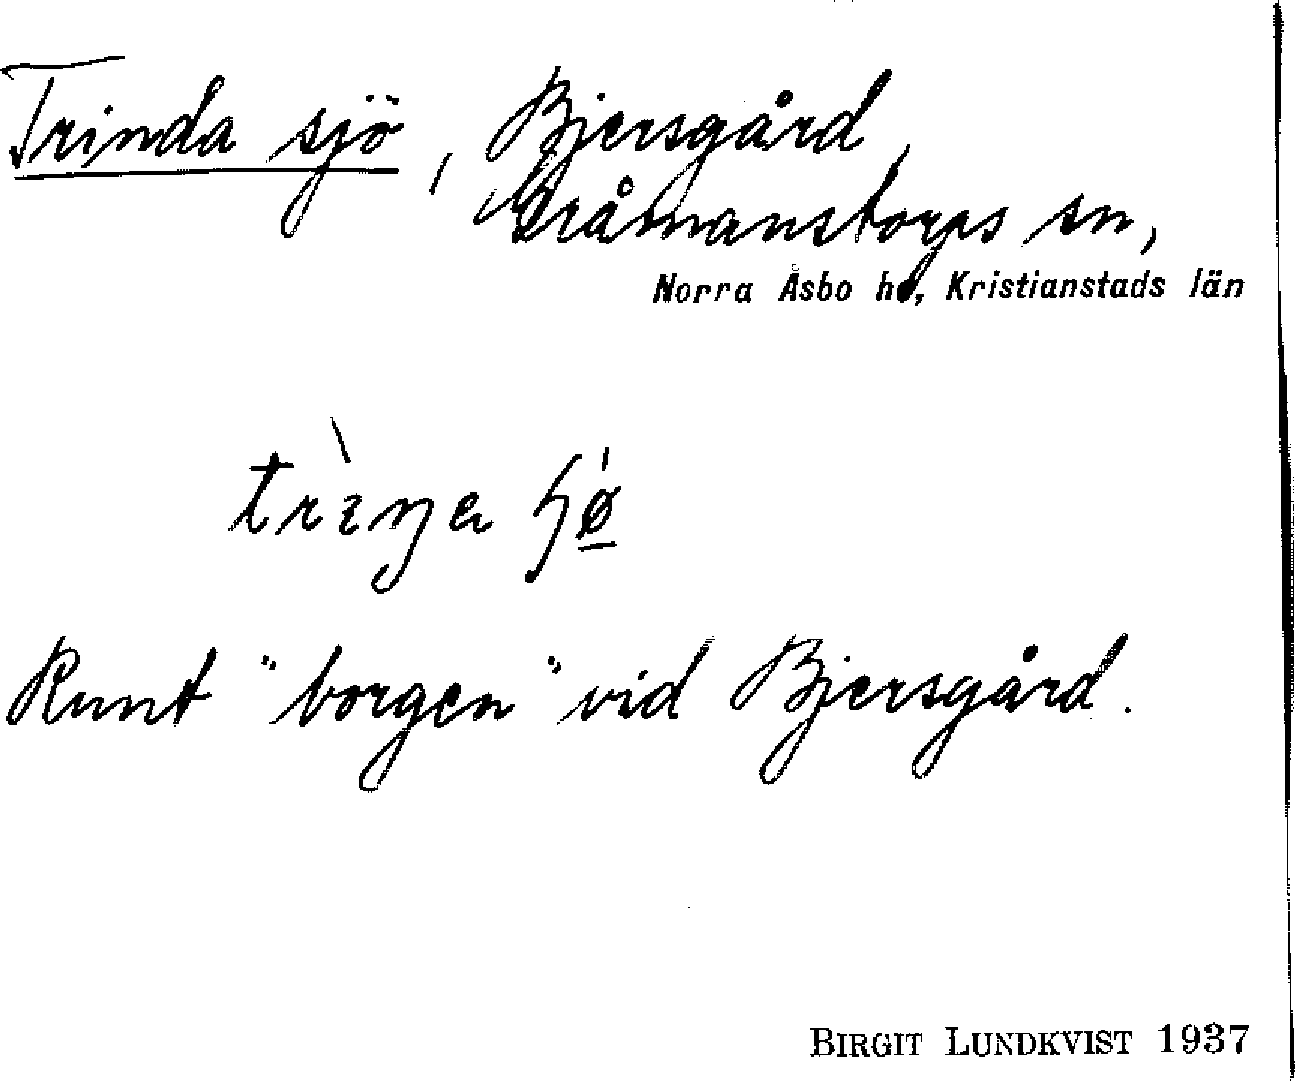 Trinda sjö, Bjersgård,
Gråmanstorps sn,
Norra Åsbo hd, Kristianstads län
Runt "borgen" vid Bjersgård.
BIRGIT LUNDKVIST 1937